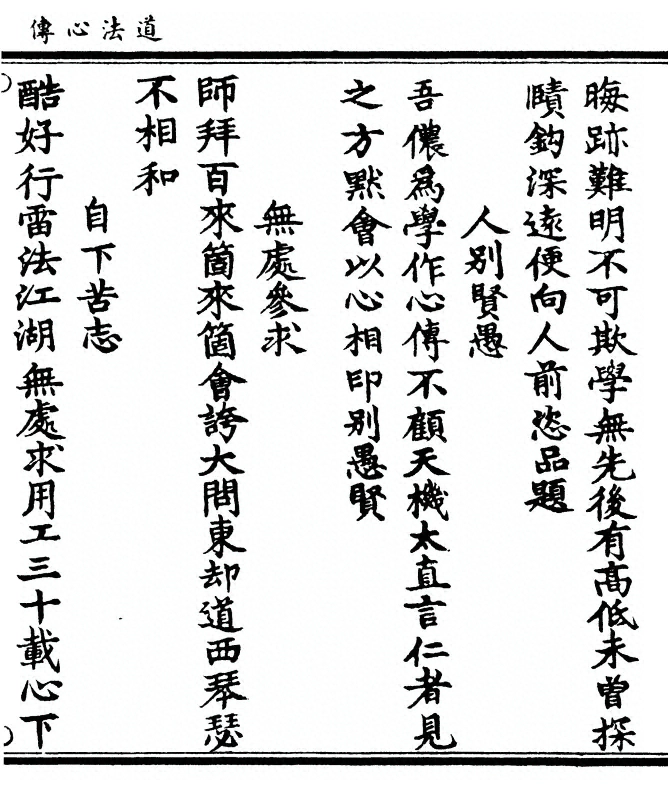 道法心傳
晦跡難明不可欺學無先後有高低未曾探
賾鈎深遠便向人前恣品題
人別賢愚
吾儂爲學作心傳不顧天機太直言仁者見
之方黙會以心相印別愚賢
無處參求
師拜百來箇來箇會誇大問東却道西琴瑟
不相和
自下苦志
酷好行雷法江湖無處求用工三十載心下